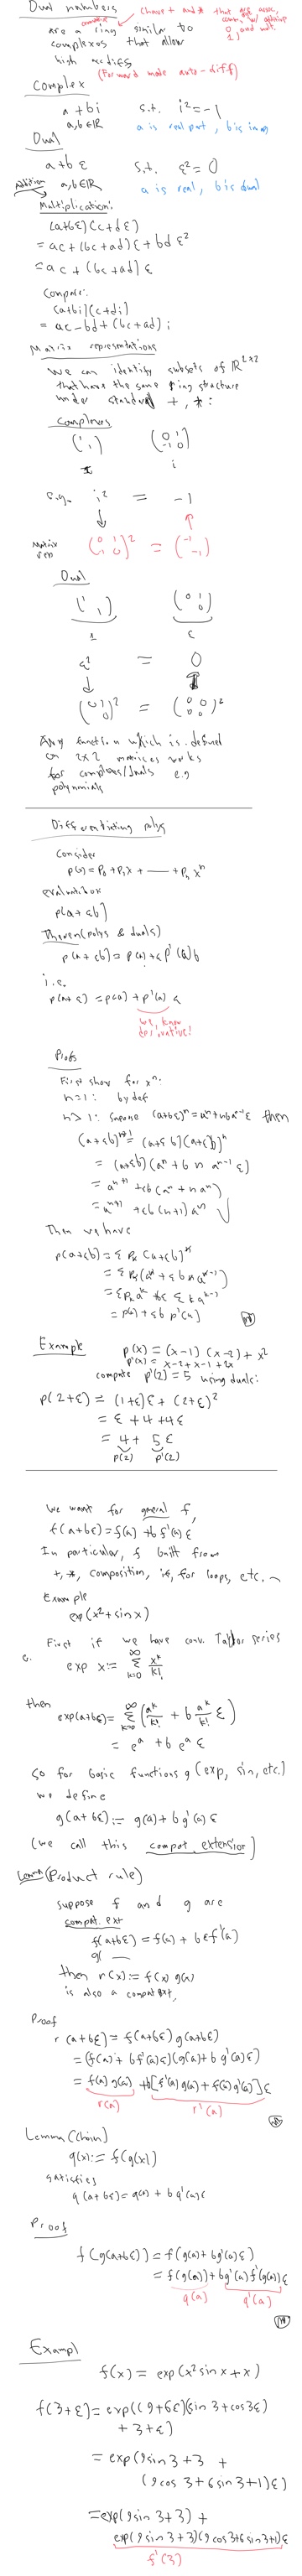 Dual numbers
are a ring similar to
complexes that allow
high acc diffs
commutative
(have + and * that
comm, w/ additive
0 and mult.
1)
(Forward mode auto-diff)
Complex
a + bi s.t. i² = -1
a,b ∈ ℝ a is real part, b is imag
Dual
a+b ε s.t. ε² = 0
a,b ∈ ℝ a is real, b is dual
Addition
Multiplication:
(a+bε)(c+dε)
= ac + (bc+ad)ε + bd ε²
= ac + (bc+ad) ε
Compare:
(a+bi)(c+di)
= ac - bd + (bc+ad) i
Matrix representations
We can identify subsets of ℝ^{2×2}
that have the same ring structure
under standard +, *:
Complexes
(1 1) (0 1 -1 0)
1 i
e.g. i² = -1
Matrix
rep (0 1 -1 0)² = (-1 -1)
Dual
(1 1) (0 1 0)
1 ε
ε² = 0
(0 1 0)² = (0 0 0 0)²
Any function which is defined
on 2x2 matrices works
for complexes/duals e.g
polynomials
Differentiating polys
Consider
p(x) = p₀ + p₁x + — + pₙ xⁿ
evaluated
p(a + εb)
Theorem (polys & duals)
p(a + εb) = p(a) + ε p'(a) b
i.e.
p(a+ε) = p(a) + p'(a) ε
we know
derivative!
Proof
First show for xⁿ:
n=1: by def
n>1: Suppose (a+bε)ⁿ = aⁿ + nbaⁿ⁻¹ε then
(a+εb)ⁿ⁺¹ = (a+εb)(a+εb)ⁿ
= (a+εb)(aⁿ + b n aⁿ⁻¹ ε)
= aⁿ⁺¹ + εb(aⁿ + n aⁿ)
= aⁿ⁺¹ + εb(n+1) aⁿ ✓
Then we have
p(a+εb) = Σ pₖ (a+εb)ᵏ
= Σ pₖ(aᵏ + εb k aᵏ⁻¹)
= Σ pₖ aᵏ + bε Σ k aᵏ⁻¹
= p(a) + εb p'(a)
Example p(x) = (x-1)(x-2) + x²
p'(x) = x-2+x-1+2x
compute p'(2) = 5 using duals:
p(2+ε) = (1+ε)ε + (2+ε)²
= ε + 4 + 4ε
= 4 + 5ε
p(2) p'(2)
We want for general f,
f(a+bε) = f(a) + b f'(a) ε
In particular, f built from
+, *, composition, if, for loops, etc.
Example
exp(x² + sin x)
First if we have conv. Taylor series
e. exp x := Σ_{k=0}^∞ x^k/k!
then
exp(a+bε) = Σ_{k=0}^∞ (a^k/k! + b a^k/k! ε)
= eᵃ + b eᵃ ε
so for basic functions g (exp, sin, etc.)
we define
g(a+bε) := g(a) + b g'(a) ε
(we call this compat. extension)
Lemma (Product rule)
suppose f and g are
compat. ext
f(a+bε) = f(a) + bεf'(a)
g( —
then r(x) := f(x) g(x)
is also a compat ext,
Proof
r(a+bε) = f(a+bε) g(a+bε)
= (f(a) + bf'(a)ε)(g(a) + b g'(a) ε)
= f(a) g(a) + b[f'(a) g(a) + f(a) g'(a)] ε
r(a) r'(a)
Lemma (Chain)
q(x) := f(g(x))
satisfies
q(a+bε) = q(a) + b q'(a) ε
Proof
f(g(a+bε)) = f(g(a) + bg'(a) ε)
= f(g(a)) + bg'(a) f'(g(a)) ε
q(a) q'(a)
Exampl
f(x) = exp(x² sin x + x)
f(3+ε) = exp((9+6ε)(sin 3 + cos3 ε)
+ 3 + ε)
= exp(9 sin 3 + 3 +
(9 cos 3 + 6 sin 3 + 1) ε)
= exp(9 sin 3 + 3) +
exp(9 sin 3 + 3)(9 cos 3 + 6 sin 3 + 1) ε
f'(3)